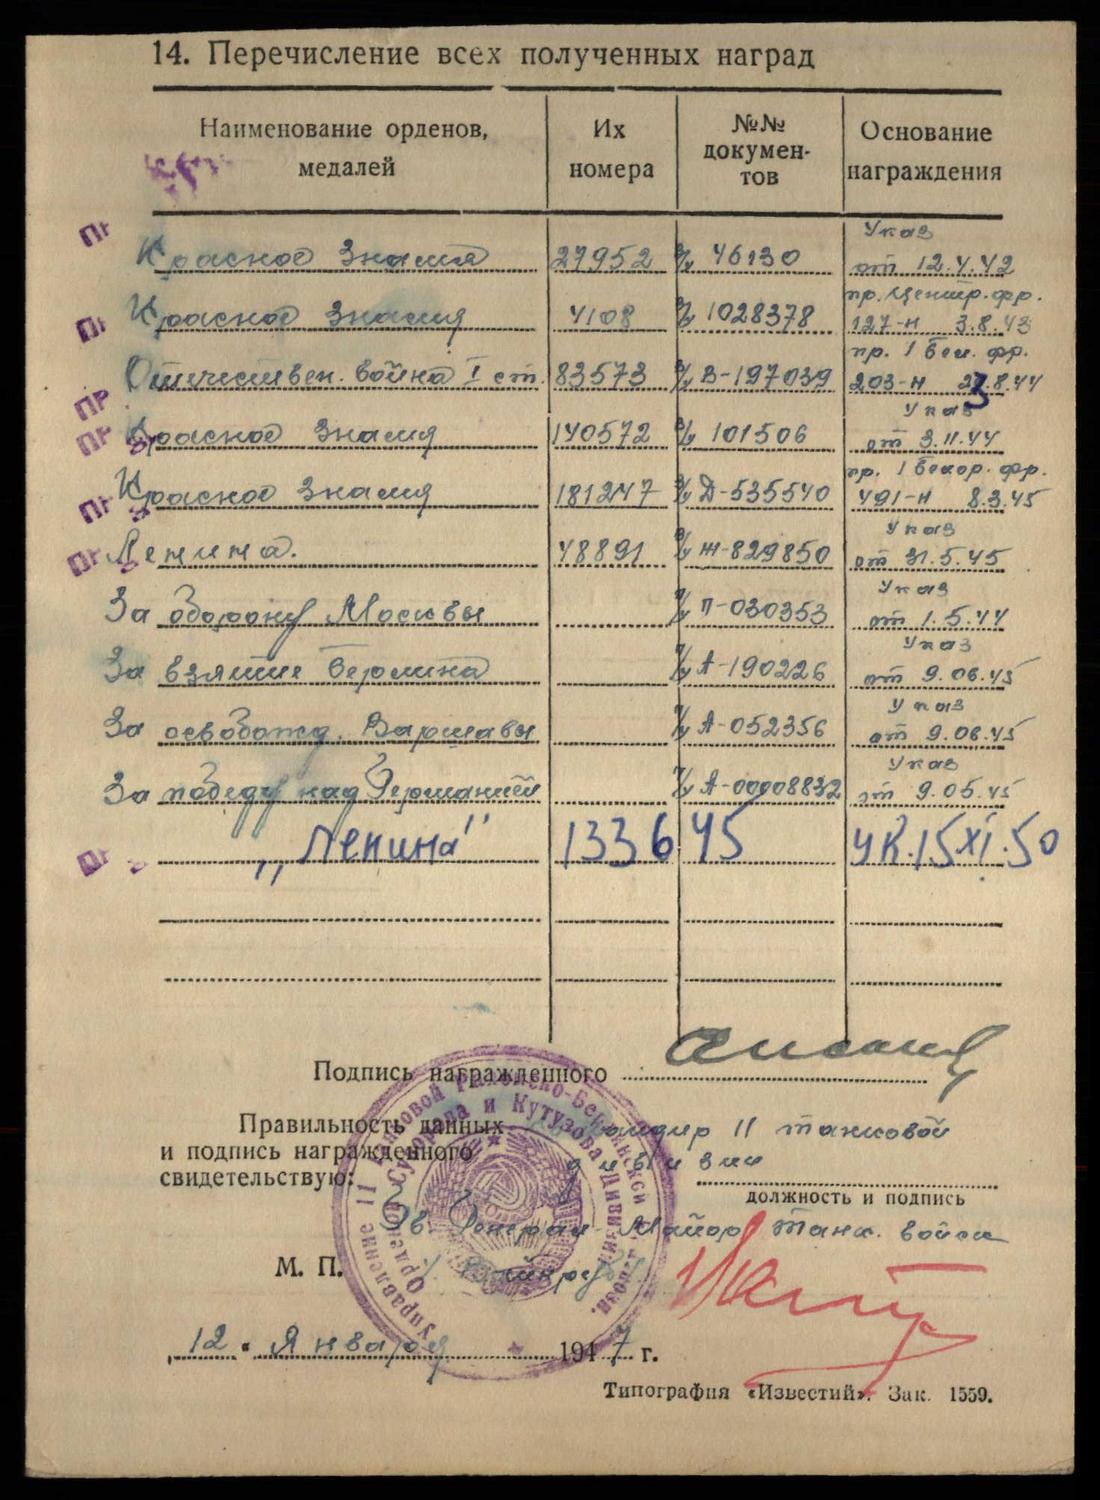 14. Перечисление всех полученных наград
Наименование орденов, медалей Их номера №№ докумен-тов Основание награждения
Указ
Красное Знамя 27952 46130 от 12.4.42
пр. Центр. фр.
Красное Знамя 4108 1028378 127-н 3.8.43
пр. 1 бел. фр.
Отечествен. война I ст. 83573 В-197039 203-н 23.8.44
Указ
Красное Знамя 140572 101506 от 3.11.44
пр. 1 белор. фр.
Красное Знамя 181247 Д-535540 491-н 8.3.45
Указ
Ленина. 48891 Ж-829850 от 31.5.45
Указ
За оборону Москвы П-030353 от 1.5.44
Указ
За взятие Берлина А-190226 от 9.06.45
Указ
За освобожд. Варшавы А-052356 от 9.06.45
Указ
За победу над Германией А-00008832 от 9.05.45
„Ленина" 133645 УК.15 XI.50
Подпись награжденного
Правильность данных
и подпись награжденного
свидетельствую:
Командир 11 танковой
дивизии
должность и подпись
Гв. Генерал-Майор танк. войск
М. П.
Управление 11 Танковой Раменско-Берлинской
Орденов Суворова и Кутузова Дивизии
„12" Января 1947 г.
Типография «Известий». Зак. 1559.